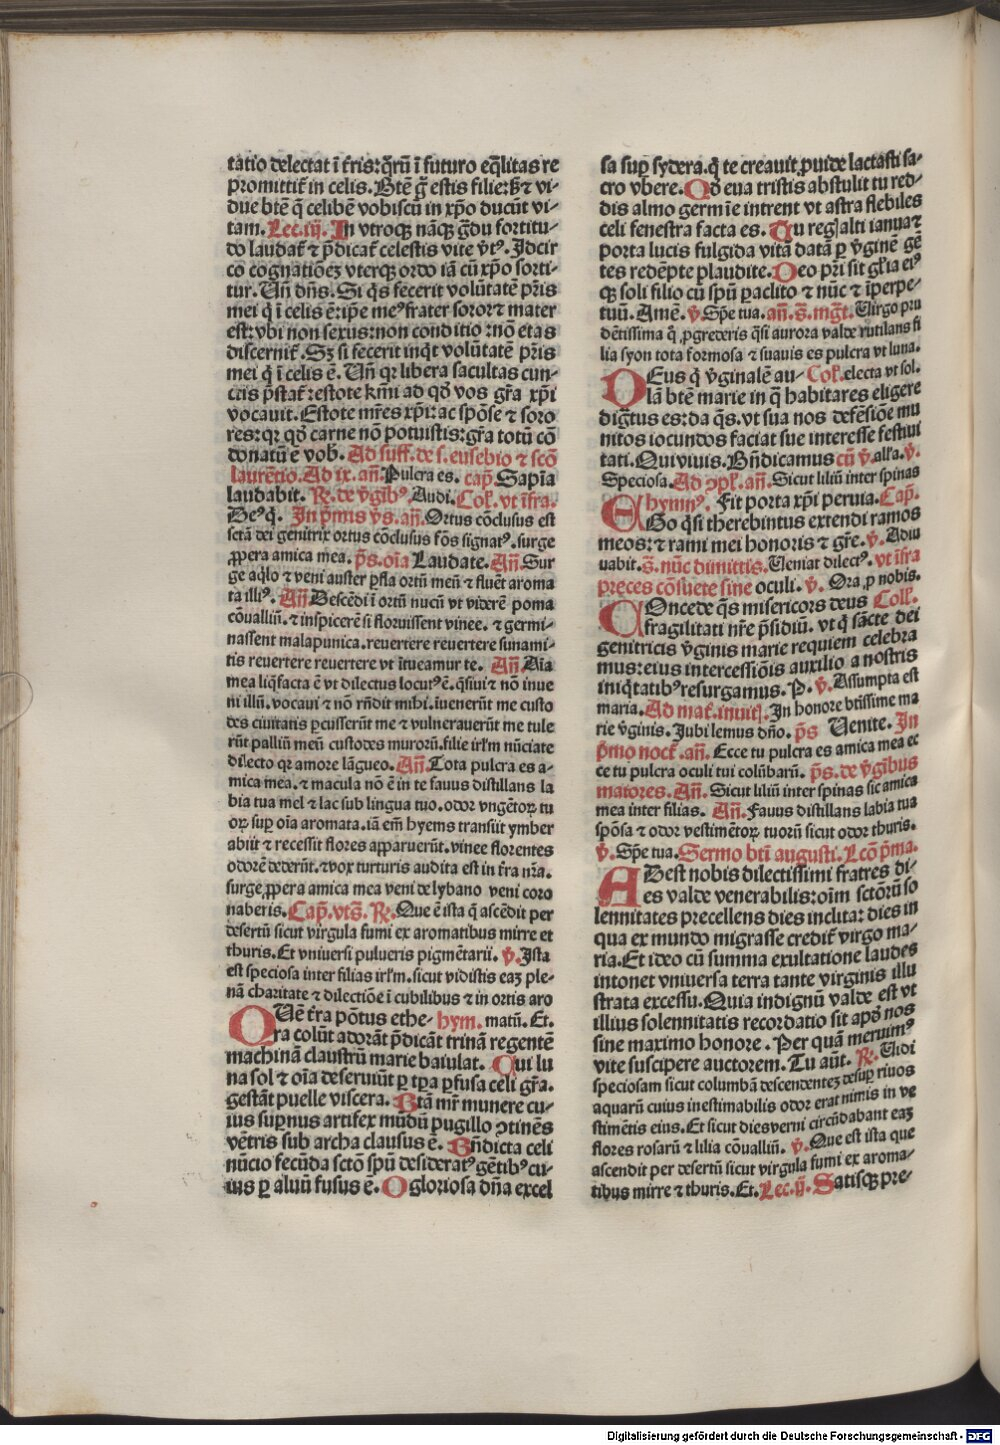 tatio delectat ī t̄ris: q̄rū ī futuro eq̄litas re
promittit̄ in celis. Btē q̄ estis filie: ꝫ vi-
due btē q̄ celibē vobiscū in xp̄o ducūt vi-
tam. Lec. iij. In vtroqꝫ nāqꝫ g̈du fortitu-
do laudat̄ ⁊ p̄dicat̄ celestis vite v̄tꝰ. Idcir
co cognatiōeꝫ vterqꝫ ordo iā cū xp̄o sorti-
tur. Uñ dñs. Si q̄s fecerit volūtatē pr̄is
mei q̄ ī celis ē: ip̄e meꝰ frater soror ⁊ mater
est: vbi non sexus: non conditio: nō etas
discernit̄. Sꝫ si fecerit inq̄t volūtatē pr̄is
mei q̄ ī celis ē. Uñ qr libera facultas cun-
ctis p̄stat̄: estote km̄i ad qd̄ vos gr̄a xp̄i
vocauit. Estote mr̄es xp̄i: ac spōse ⁊ soro
res: qr qd̄ carne nō potuistis: gr̄a totū cō
donatū ē vob̄. Ad suff. de s. eusebio ⁊ scō
laurētio. Ad ix. añ. Pulcra es. cap̄. Sapīa
laudabit. R̄. de v̄gībꝰ. Audi. Col̄. vt īfra.
Deꝰ q̄. In p̄mis v̄s. añ. Ortus cōclusus est
sctā dei genitrix ortus cōclusus fōs signatꝰ. surge
ꝓpera amica mea. p̄s. oīa Laudate. Añ. Sur
ge aq̄lo ⁊ veni auster ꝑfla ortū meū ⁊ fluēt aroma
ta illiꝰ. Añ Descēdi ī ortū nucū vt viderē poma
cōualliū. ⁊ inspicerē si floruissent vinee. ⁊ germi-
nassent malapunica. reuertere reuertere sunami-
tis reuertere reuertere vt ītueamur te. Añ. Aīa
mea liq̄facta ē vt dilectus locutꝰ ē. q̄siui ⁊ nō inue
ni illū. vocaui ⁊ nō rn̄dit mihi. īuenerūt me custo
des ciuitatis ꝑcusserūt me ⁊ vulnerauerūt me tule
rūt palliū meū custodes murorū. filie irl̄m nūciate
dilecto qr amore lāgueo. Añ. Tota pulcra es a-
mica mea. ⁊ macula nō ē in te fauus distillans la
bia tua mel ⁊ lac sub lingua tuo. odor vngētoꝝ tu
oꝝ sup̄ oīa aromata. iā em̄ hyems transiit ymber
abiit ⁊ recessit flores apparuerūt. vinee florentes
odorē dederūt. ⁊ vox turturis audita est in t̄ra nr̄a.
surge ꝓpera amica mea veni de lybano veni coro
naberis. Cap̄. vts̄. R̄. Que ē ista q̄ ascēdit per
desertū sicut virgula fumi ex aromatibus mirre et
thuris. Et vniuersi pulueris pigmētarii. v̄. Ista
est speciosa inter filias irl̄m. sicut vidistis eaꝫ ple-
nā charitate ⁊ dilectiōe ī cubilibus ⁊ in ortis aro
QUē t̄ra pōtus ethe- hym. matū. Et.
ra colūt adorāt p̄dicāt trinā regentē
machinā claustrū marie baiulat. Qui lu
na sol ⁊ oīa deseruiūt ꝑ tp̄a ꝑfusa celi gr̄a.
gestāt puelle viscera. Btā mr̄ munere cu-
ius sup̄nus artifex mūdū pugillo ꝯtinēs
vētris sub archa clausus ē. Bn̄dicta celi
nūcio fecūda sctō spū desideratꝰ gētibꝰ cu-
ius ꝑ aluū fusus ē. O gloriosa dn̄a excel
sa sup̄ sydera. q̄ te creauit ꝓuide lactasti sa-
cro vbere. Qd̄ eua tristis abstulit tu red-
dis almo germīe intrent vt astra flebiles
celi fenestra facta es. Tu regꝭ alti ianua ⁊
porta lucis fulgida vitā datā ꝑ v̄ginē gē
tes redēpte plaudite. Deo pr̄i sit gl̄ia eiꝰ
qꝫ soli filio cū spū paclito ⁊ nūc ⁊ īperpe-
tuū. Amē. v̄ Spē tua. añ. s̄. mg̅t. Uirgo pru
dētissima q̄ ꝓgrederis q̄si aurora valde rutilans fi
lia syon tota formosa ⁊ suauis es pulcra vt luna.
DEus q̄ v̄ginalē au- Col̄. electa vt sol.
lā btē marie in q̄ habitares eligere
dig̅tus es: da q̄s. vt sua nos defēsiōe mu
nitos iocundos faciat sue interesse festiui
tati. Qui viuis. Bn̄dicamus cū v̄. all̄a. v̄.
Speciosa. Ad ꝯpl̄. añ. Sicut liliū inter spinas
hymnꝰ. Fit porta xp̄i peruia. Cap̄.
EGo q̄si therebintus extendi ramos
meos: ⁊ rami mei honoris ⁊ gr̄e. v̄. Adiu
uabit. s̄. nūc dimittis. Ueniat dilectꝰ. vt īfra
preces cōsuete sine oculi. v̄. Ora ꝓ nobis.
COncede q̄s misericors deus Coll̄.
fragilitati nr̄e p̄sidiū. vt q̄ sācte dei
genitricis v̄ginis marie requiem celebra
mus: eius intercessiōis auxilio a nostris
iniq̄tatibꝰ resurgamus. P. v̄. Assumpta est
maria. Ad mat̄. inuitꝭ. In honore btissime ma
rie v̄ginis. Jubilemus dn̄o. p̄s Uenite. In
p̄mo noct̄. añ. Ecce tu pulcra es amica mea ec
ce tu pulcra oculi tui colūbarū. p̄s. de v̄gībus
maiores. Añ. Sicut liliū inter spinas sic amica
mea inter filias. Añ. Fauus distillans labia tua
spōsa ⁊ odor vestimētoꝝ tuorū sicut odor thuris.
v̄. Spē tua. Sermo bti augusti. Lcō p̄ma.
ADest nobis dilectissimi fratres di-
es valde venerabilis: oīm sctōrū so
lennitates precellens dies inclita: dies in
qua ex mundo migrasse credit̄ virgo ma-
ria. Et ideo cū summa exultatione laudes
intonet vniuersa terra tante virginis illu
strata excessu. Quia indignū valde est vt
illius solennitatis recordatio sit apd̄ nos
sine maximo honore. Per quā meruimꝰ
vite suscipere auctorem. Tu aūt. R̄. Uidi
speciosam sicut columbā descendenteꝫ desuꝑ riuos
aquarū cuius inestimabilis odor erat nimis in ve
stimētis eius. Et sicut dies verni circūdabant eaꝫ
flores rosarū ⁊ lilia cōualliū. v̄. Que est ista que
ascendit per desertū sicut virgula fumi ex aroma-
tibus mirre ⁊ thuris. Et. Lec. ij. Satisqꝫ pre-
Digitalisierung gefördert durch die Deutsche Forschungsgemeinschaft - DFG